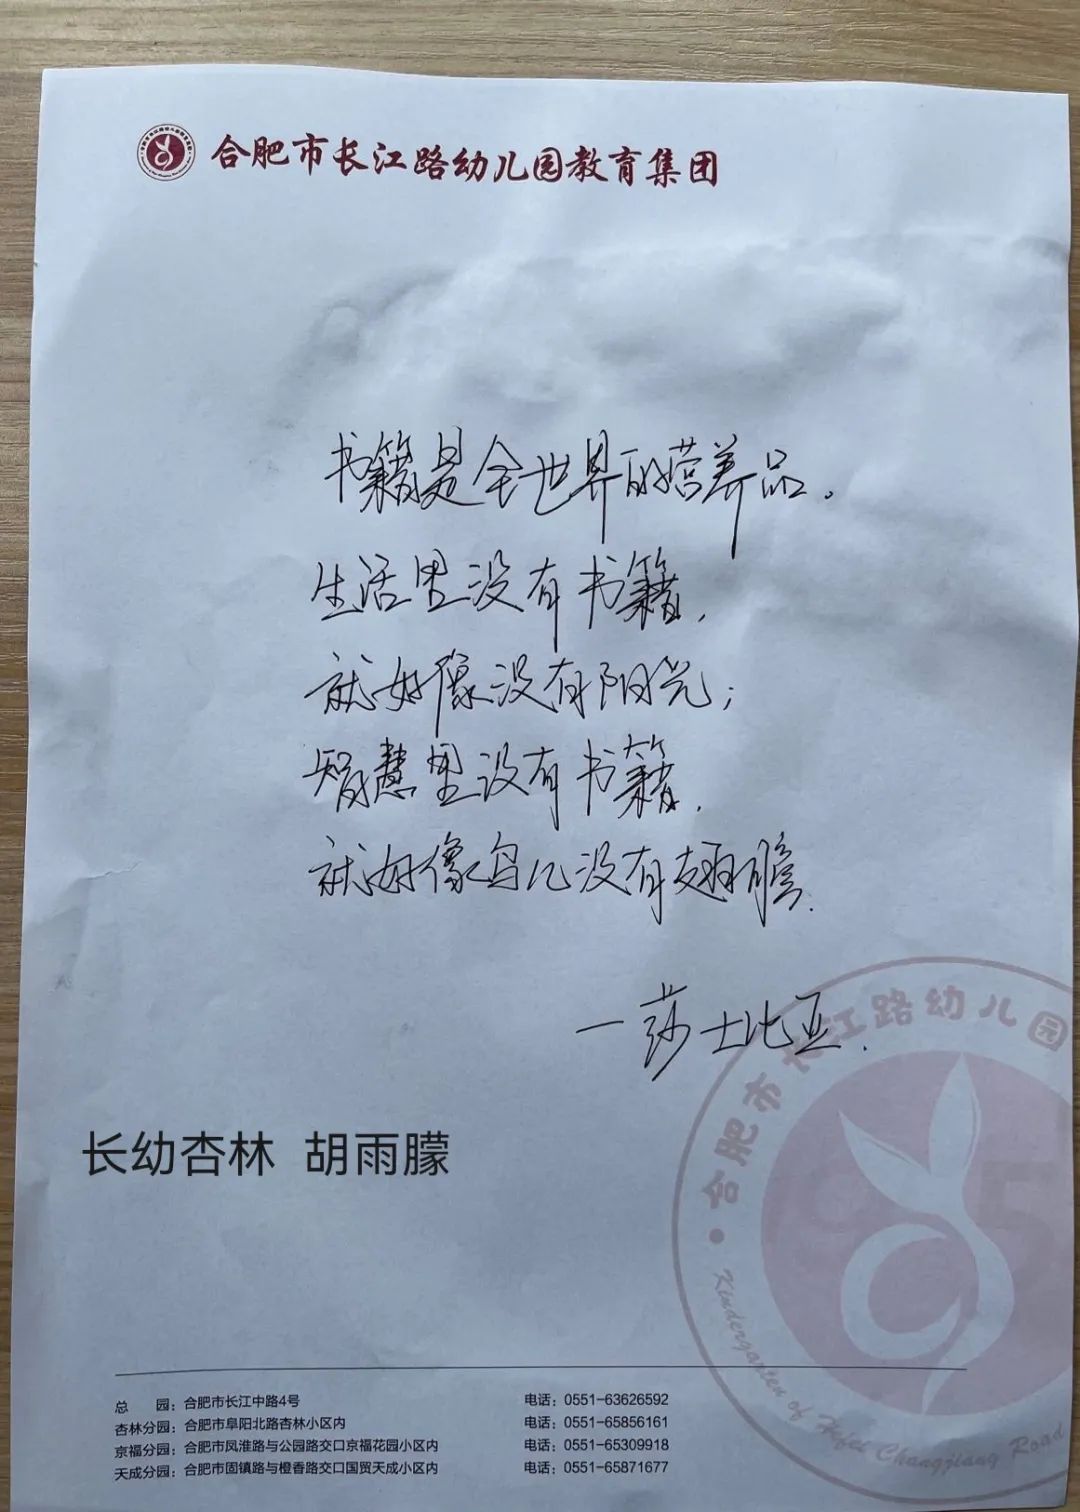 合肥市长江路幼儿园教育集团
书籍是全世界的营养品。
生活里没有书籍,
就好像没有阳光;
智慧里没有书籍,
就好像鸟儿没有翅膀.
—莎士比亚.
长幼杏林 胡雨朦
合肥市长江路幼儿园
Kindergarten of Hefei Changjiang Road
总 园:合肥市长江中路4号 电话:0551-63626592
杏林分园:合肥市阜阳北路杏林小区内 电话:0551-65856161
京福分园:合肥市凤淮路与公园路交口京福花园小区内 电话:0551-65309918
天成分园:合肥市固镇路与橙香路交口国贸天成小区内 电话:0551-65871677